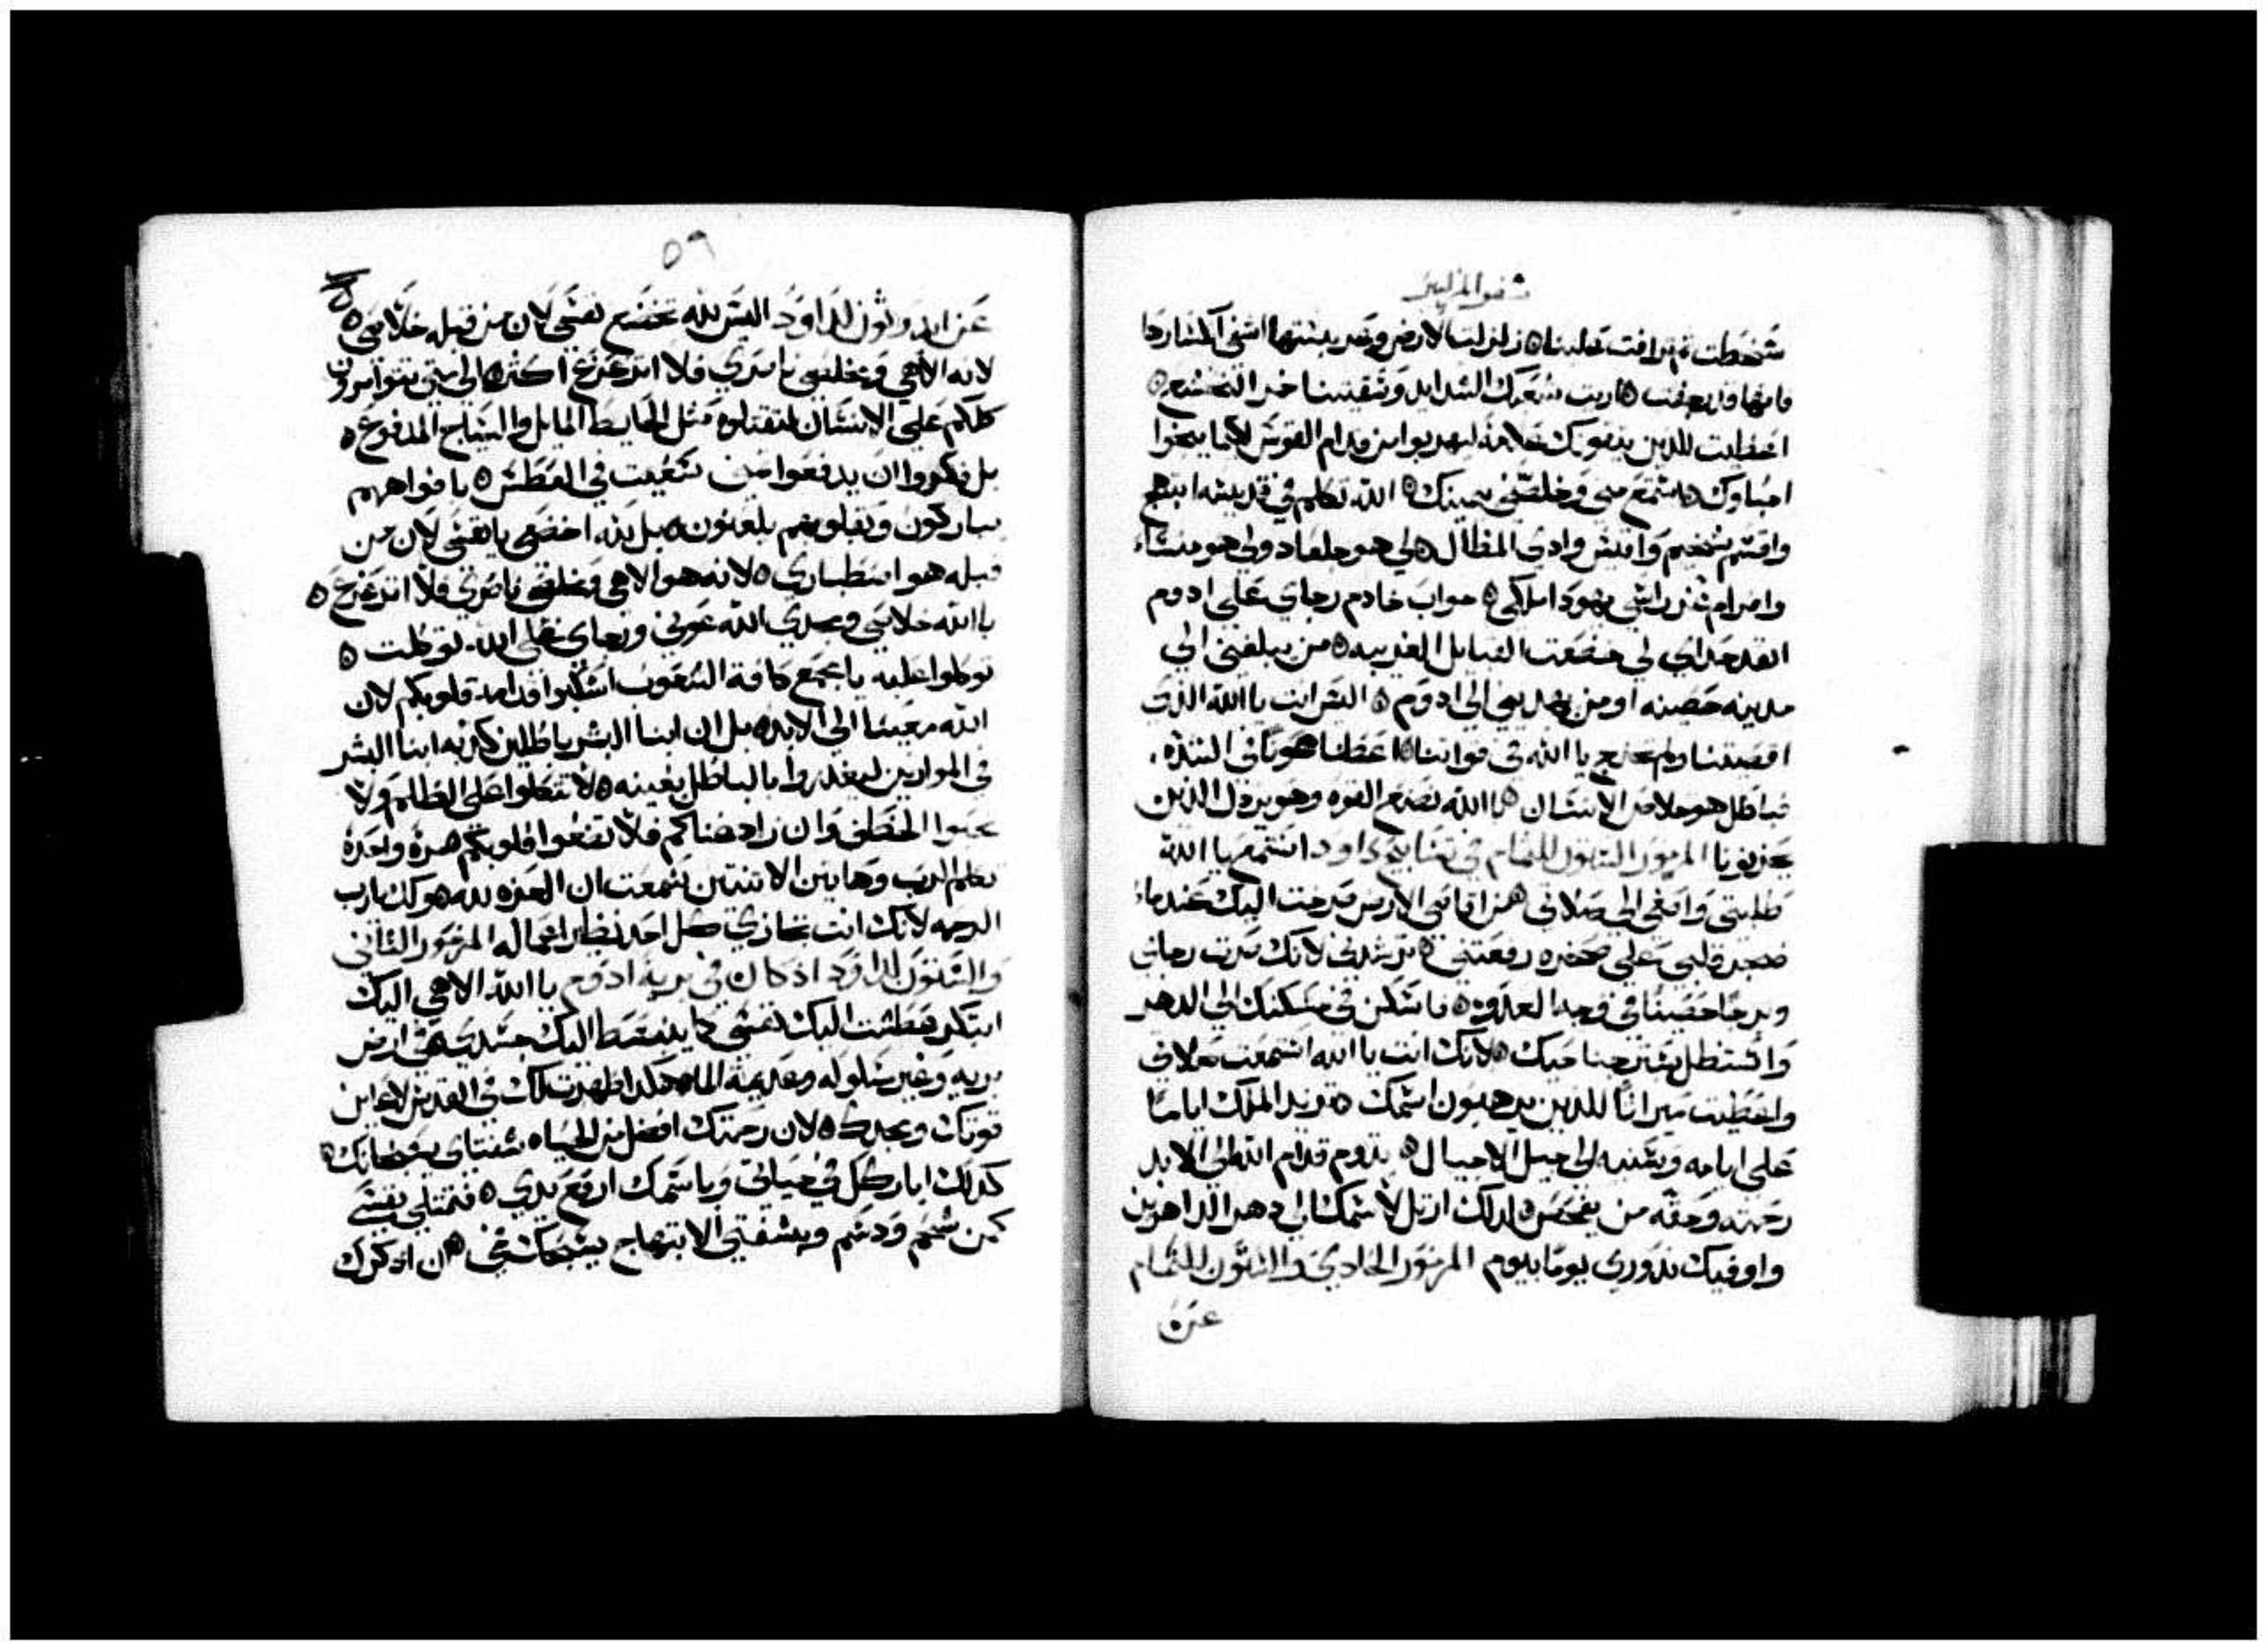 سفر المزامير
سخطت ثم ترافت علينا ه زلزلت الارض وقد بينتها اشفي انكسارها
فانها قد ارتجفت ه اريت شعبك الشدايد وسقيتنا خمر التخشع ه
اعطيت للدين يتقونك علامة ليهربوا من قدام القوس لكيما ينجوا
احباوك ه استمع مني وخلصني بيمينك ه الله تكلم في قديسه ابتهج
واقسم شخيم واقيس وادي المظال ه لي هو جلعاد ولي هو منشاء
وافرام عز راسي يهودا ملكي ه مواب خادم رجاي علي ادوم
امد حداي لي خضعت القبايل الغريبه ه من يبلغني الي
مدينه حصينه او من يهديني الي ادوم ه اليس انت يا الله الذي
اقصيتنا ولم تخرج يا الله في قواتنا ه اعطنا عونا في الشده
فباطل هو خلاص الانسان ه بالله نصنع القوه وهو يرذل الذين
يحزنونا المزمور الستون للتمام في تسابيح داود استمع يا الله
طلبتي واصغي الي صلاتي ه من اقاصي الارض صرخت اليك عندما
ضجر قلبي علي صخره رفعتني ه ترشدني لانك صرت رجاي
وبرجا حصينا في وجه العدو ه فاسكن في مسكنك الي الدهر
واستظل بستر جناحيك ه لانك انت يا الله استمعت صلاتي
واعطيت ميراثا للدين يرهبون اسمك ه تزيد الملك اياما
علي ايامه وسنيه الي جيل الاجيال ه يدوم قدام الله الي الابد
رحمته وحقه من يفحص ه لدلك ارتل لاسمك الي دهر الداهرين
واوفيك ندوري يوما بيوم المزمور الحادي والستون للتمام
عن
٥٩
عن ايدوثون لداود اليس لله تخضع نفسي لان من قبله خلاصي ه
لانه الاهي ومخلصي ناصري فلا اتزعزع اكثر ه الي متي تتوامرون
كلكم علي الانسان لتقتلوه مثل الحايط المايل والسياج المدفوع ه
بل فكروا ان يدفعوا ثمني سعيت في العطش ه بافواههم
يباركون وبقلوبهم يلعنون ه بل لله اخضعي يا نفسي لان من
قبله هو اصطباري ه لانه هو الاهي ومخلصي ناصري فلا اتزعزع ه
بالله خلاصي ومجدي الله عوني ورجاي علي الله توكلت ه
توكلوا عليه يا مجمع كافة الشعوب اسكبوا قدامه قلوبكم لان
الله معيننا الي الابد ه بل ان ابنا البشر باطلين كدبه ابنا البشر
في الموازين ليغدروا بالباطل بعينه ه لا تتكلوا علي الظلم ولا
تحبوا الخطف وان زاد غناكم فلا تضعوا قلوبكم ه مرة واحدة
تكلم الرب وهاتين الاثنتين سمعت ان العزه لله هو لك يارب
الرحمه لانك انت تجازي كل احد نظير اعماله المزمور الثاني
والستون لداود اذ كان في برية ادوم يا الله الاهي اليك
ابتكر عطشت اليك نفسي لكيما ينبسط اليك جسدي في ارض
بريه وغير مسلوكه وعديمة الما ه هكدا ظهرت لك في القدس لاعاين
قوتك ومجدك ه لان رحمتك افضل من الحياه شفتاي يسبحانك ه
كدلك اباركك في حياتي وباسمك ارفع يدي ه فتمتلي نفسي
كمن شحم ودسم وبشفتي الابتهاج يسبحك فمي ه ان ادكرك